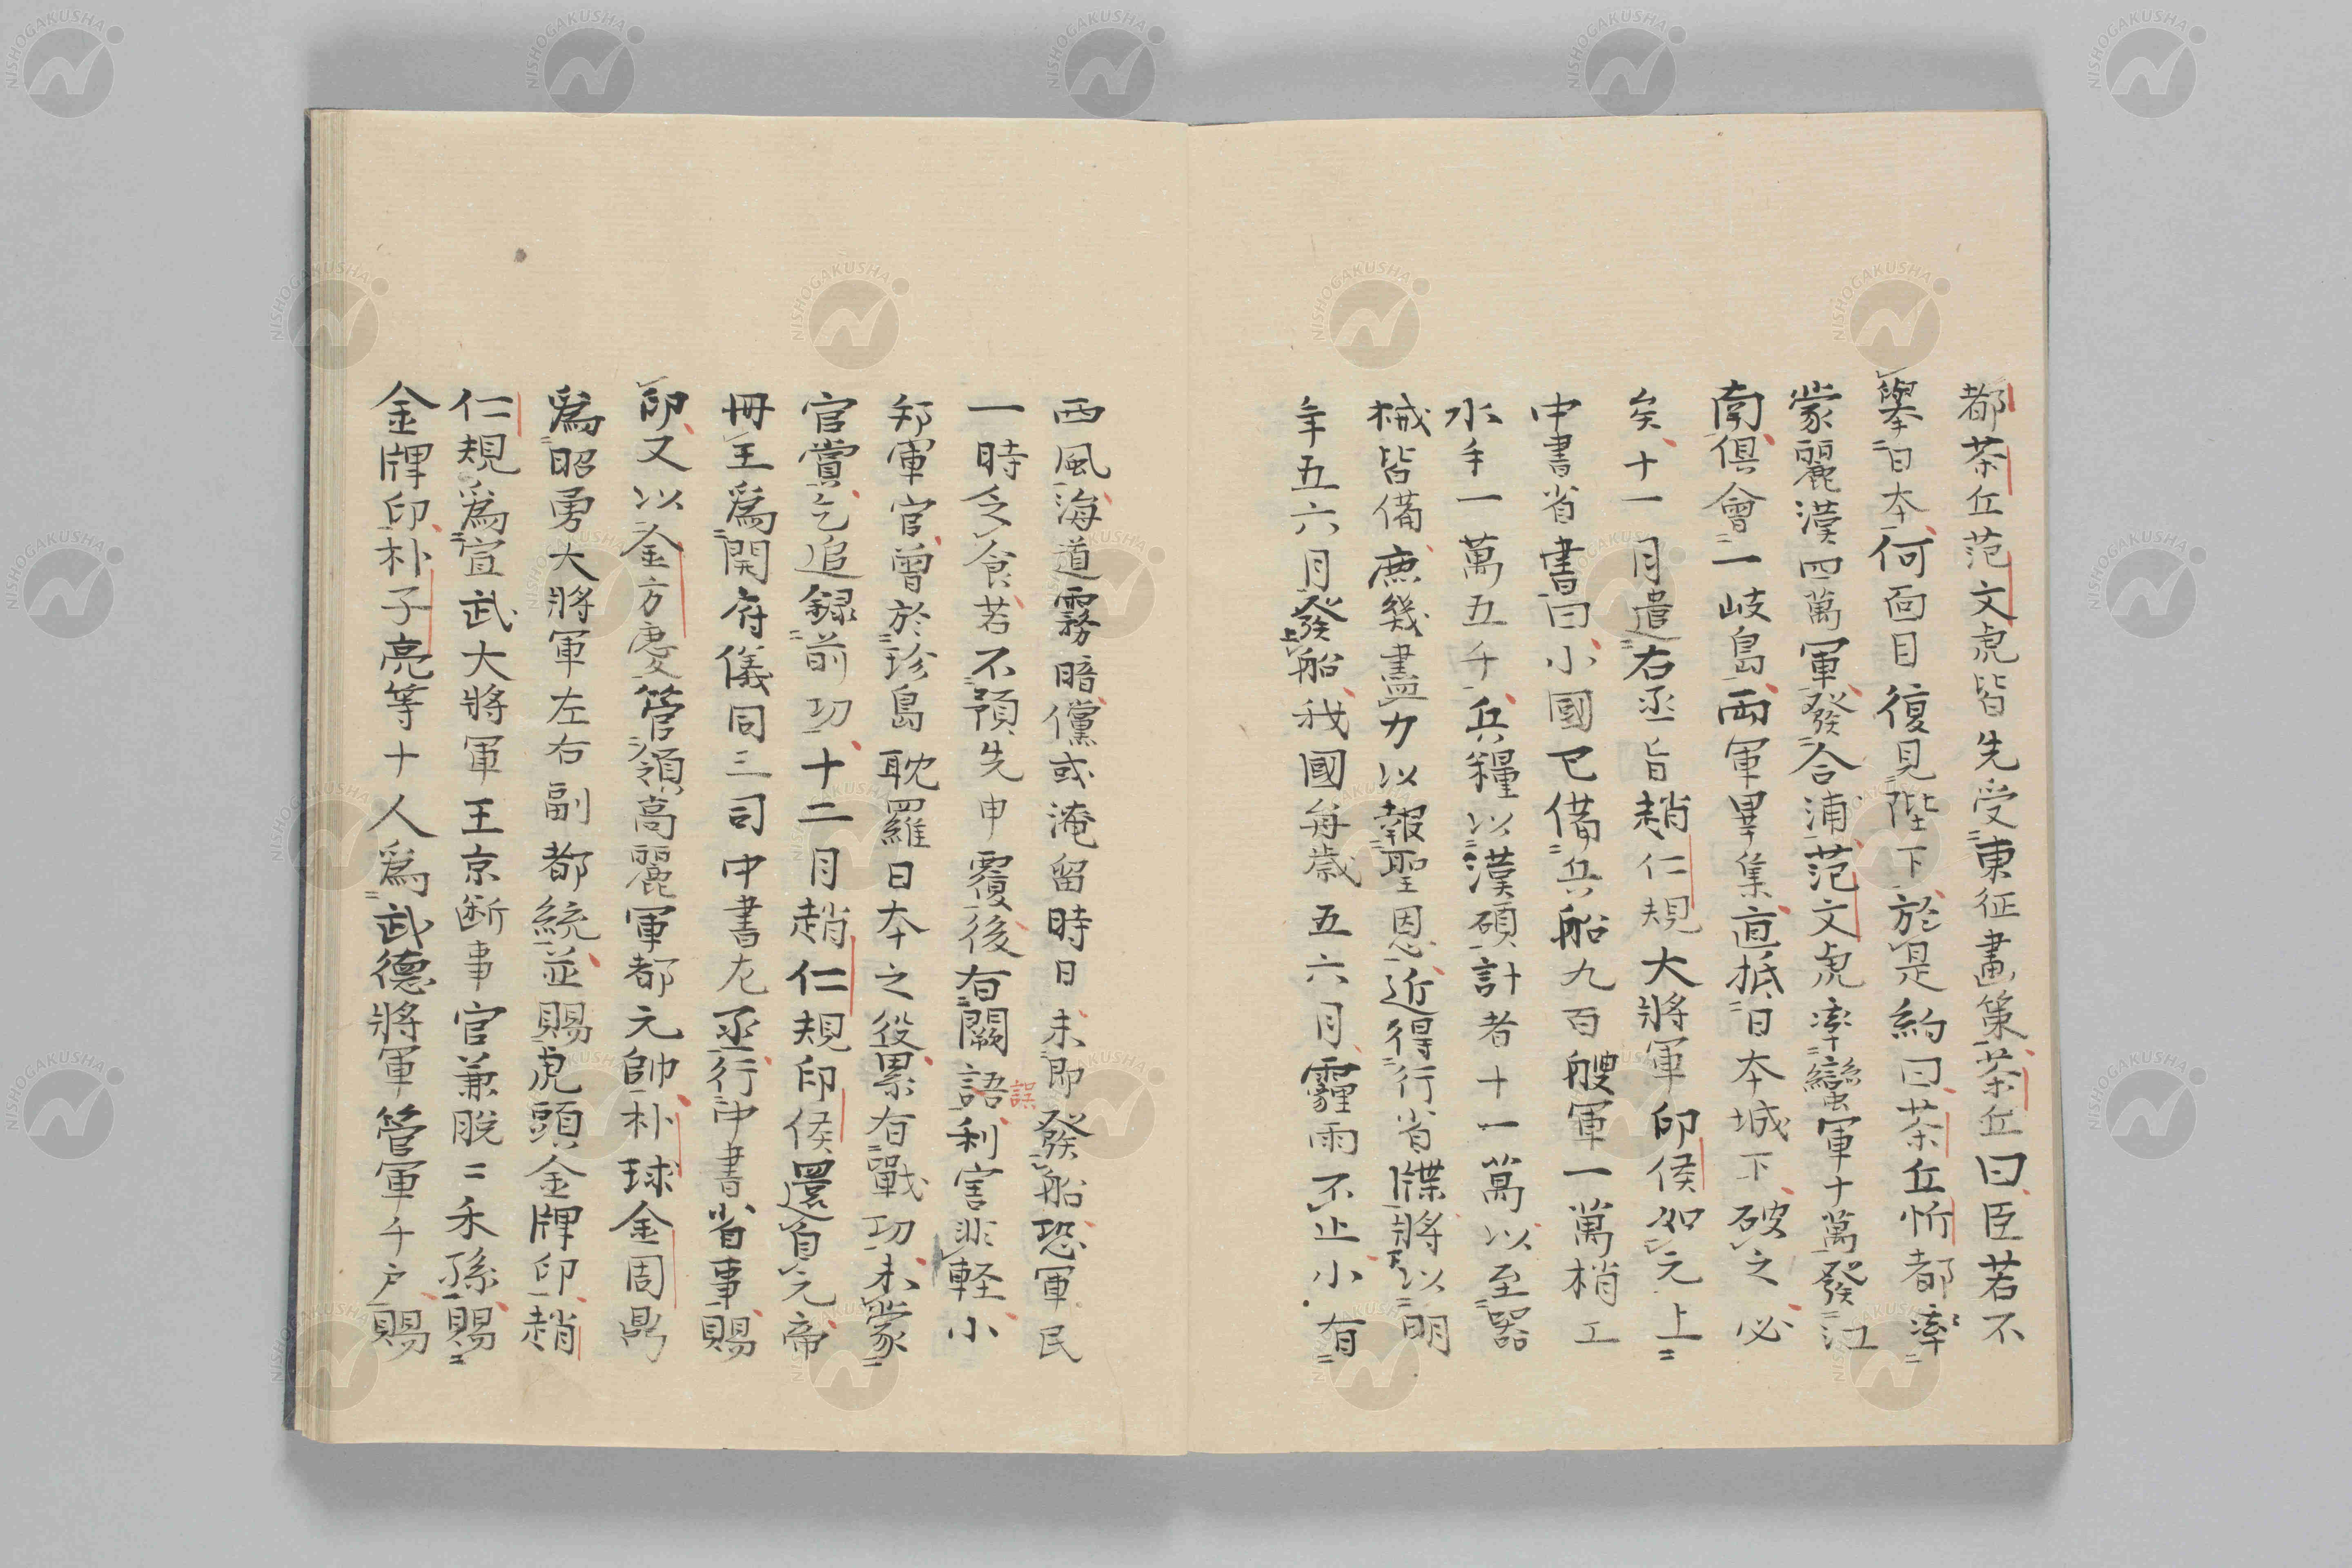 都茶丘范文虎皆先受東征畫策茶丘曰臣若不
擧日本何面目復見陛下於是約曰茶丘忻都率
蒙麗漢四萬軍發合浦范文虎率蠻軍十萬發江
南俱會一岐島兩軍畢集直抵日本城下破之必
矣十一月遣右丞旨趙仁規大將軍印侯如元上
中書省書曰小國已備兵船九百艘軍一萬梢工
水手一萬五千兵糧以漢碩計者十一萬以至器
械皆備庶幾盡力以報聖恩近得行省牒將以明
年五六月發船我國每歲五六月霾雨不止小有
西風海道霧暗儻或淹留時日未即發船恐軍民
一時乏食若不預先申覆後有闕語利害非軽小
邦軍官曾於珍島耽羅日本之役累有戰功未蒙
官賞乞追録前功十二月趙仁規印侯還自元帝
冊王爲開府儀同三司中書左丞行中書省事賜
印又以金方慶管領高麗軍都元帥朴球金周鼎
爲昭勇大將軍左右副都統並賜虎頭金牌印趙
仁規爲宣武大將軍王京断事官兼脱二禾孫賜
金牌印朴子亮等十人爲武德將軍管軍千户賜
誤
NISHOGAKUSHA